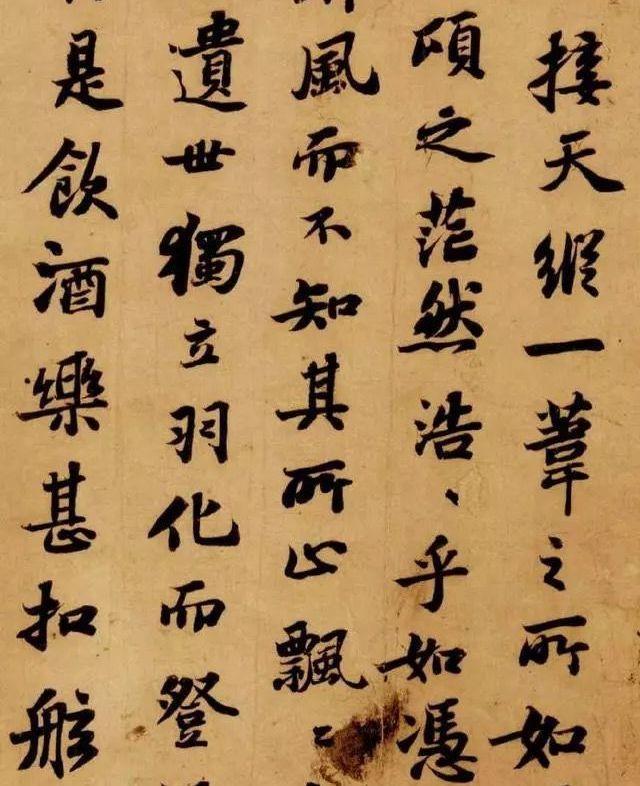 接天縱一葦之所如
頃之茫然浩〻乎如憑
風而不知其所止飄〻
遺世獨立羽化而登
是飲酒樂甚扣舷